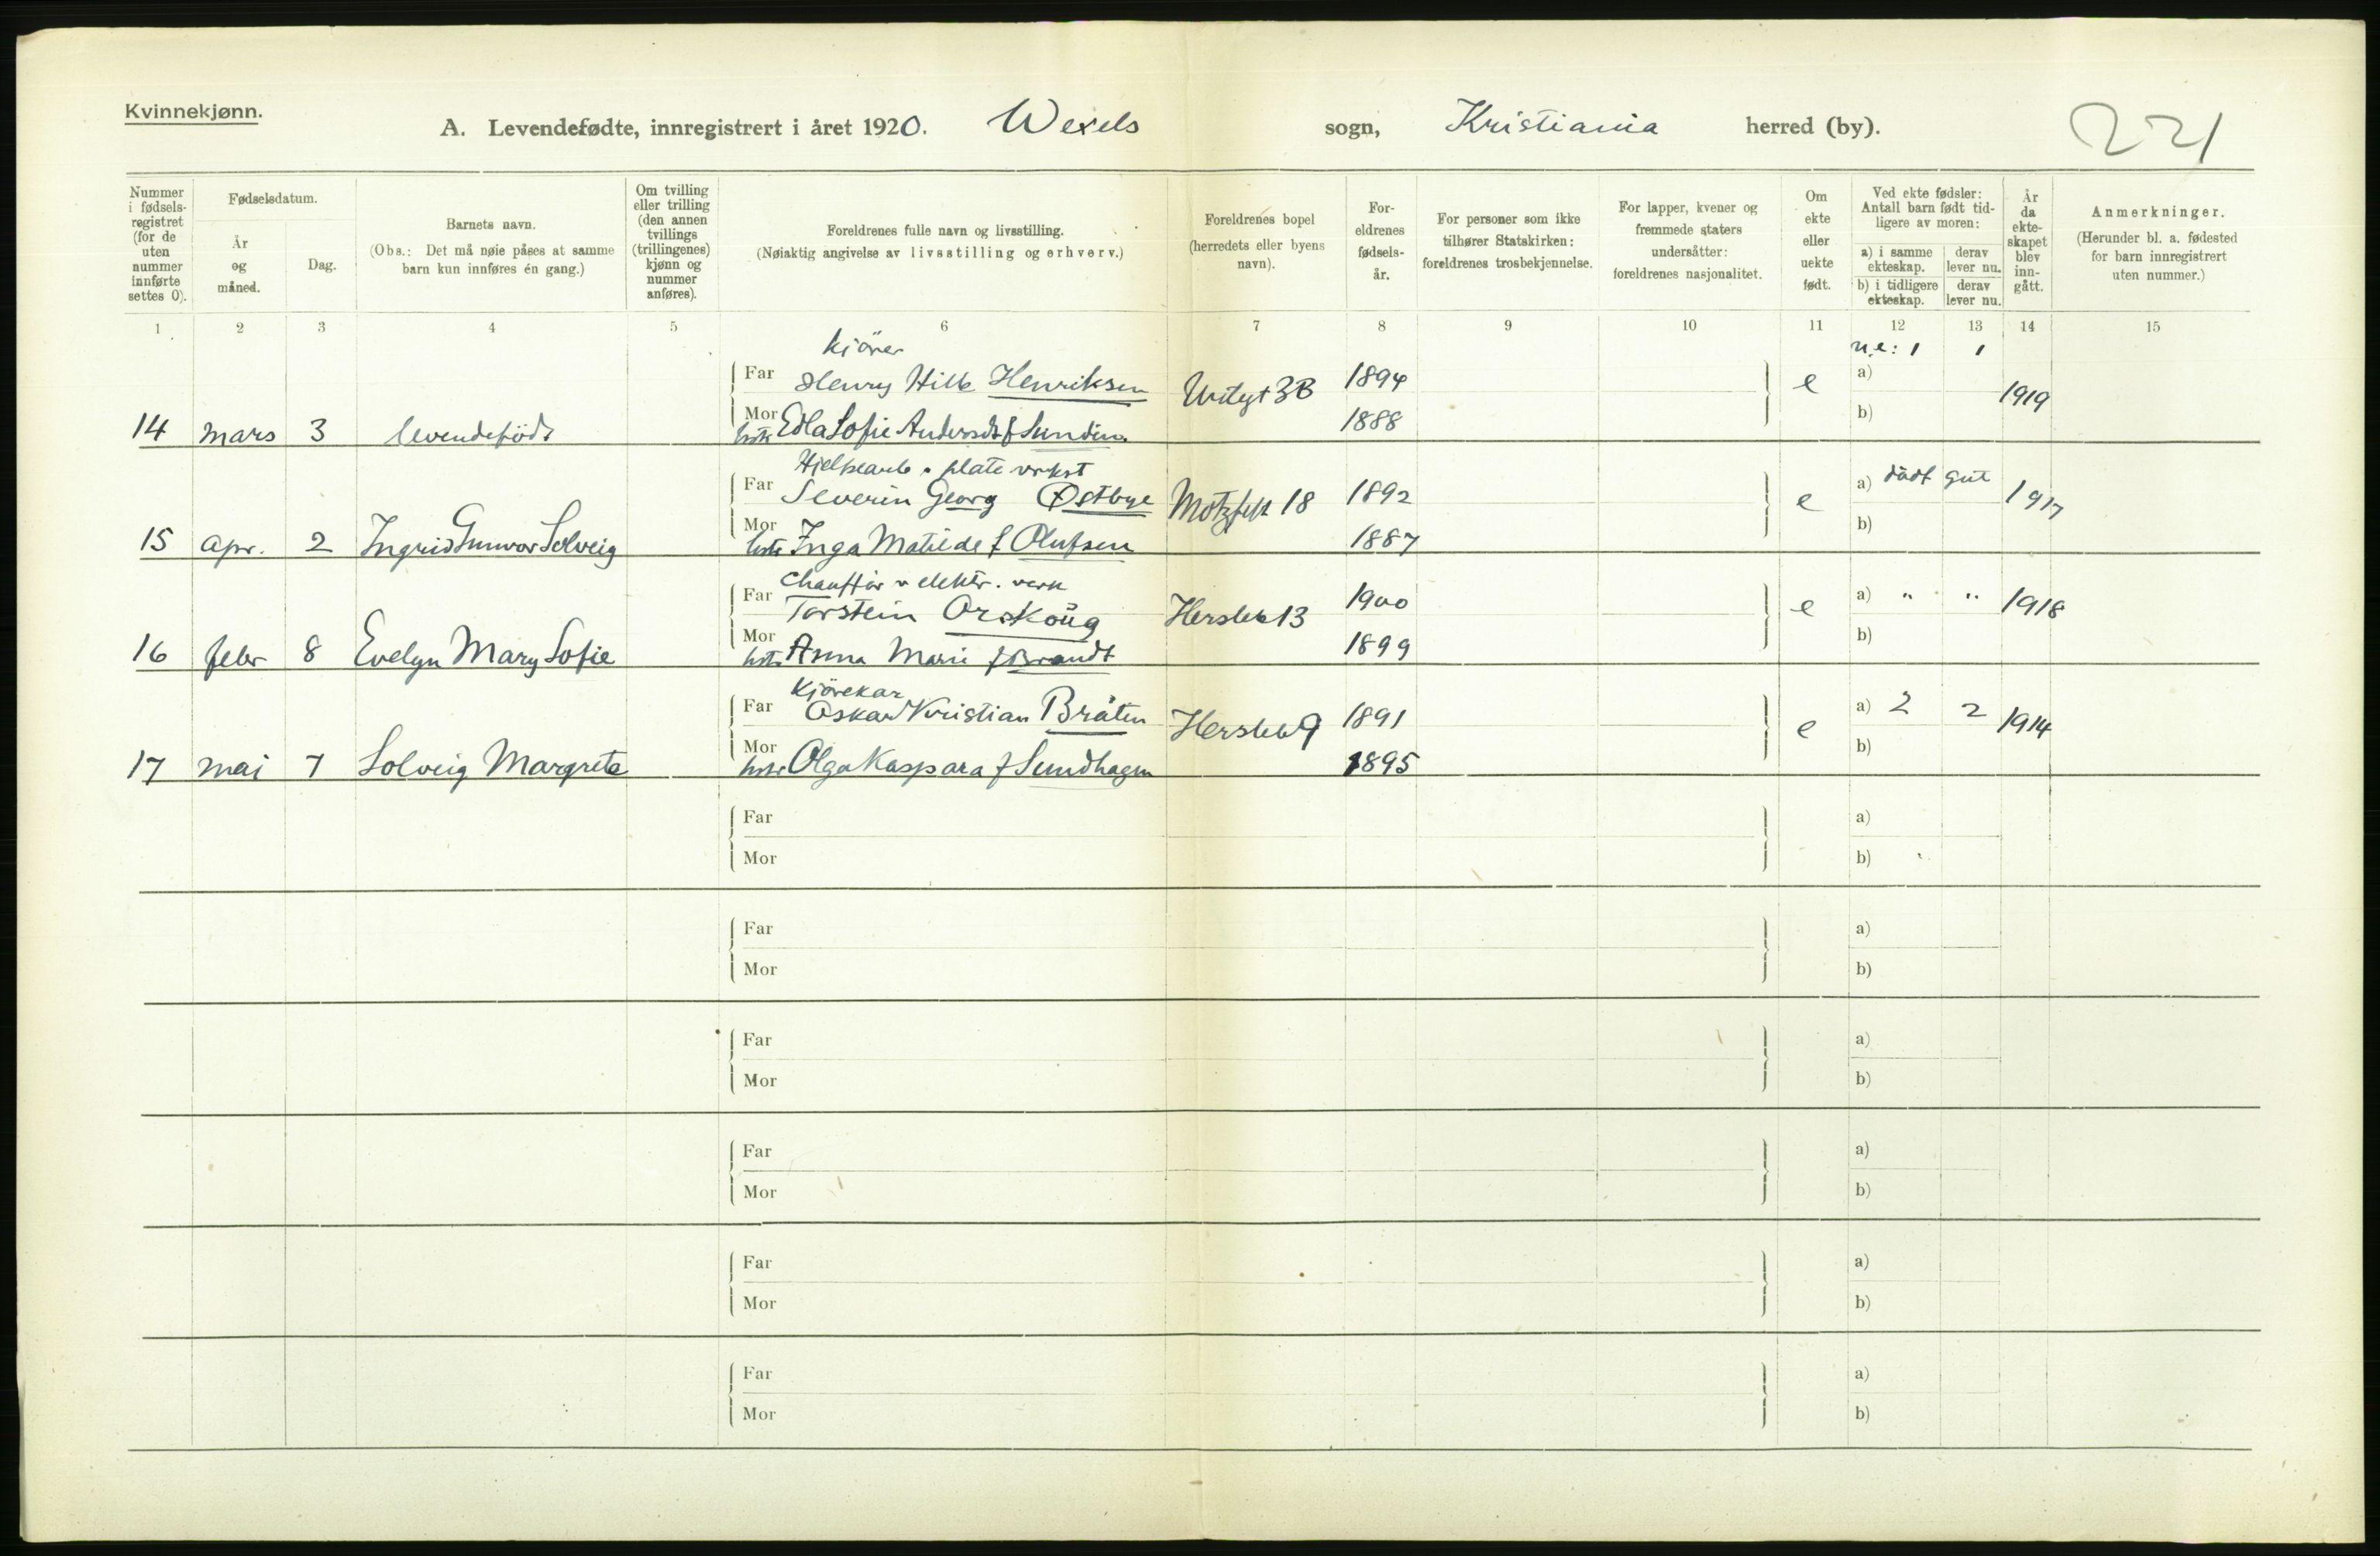 Kvinnekjønn.
A. Levendefødte, innregistrert i året 1920. Wexels sogn, Kristiania herred (by). 221
Nummer i fødselsregistret (for de uten nummer innførte settes 0).
Fødselsdatum.
År og måned.
Dag.
Barnets navn.
(Obs.: Det må nøie påses at samme barn kun innføres én gang.)
Om tvilling eller trilling (den annen tvillings (trillingenes) kjønn og nummer anføres).
Foreldrenes fulle navn og livsstilling.
(Nøiaktig angivelse av livsstilling og erhverv.)
Foreldrenes bopel (herredets eller byens navn).
Foreldrenes fødselsår.
For personer som ikke tilhører Statskirken: foreldrenes trosbekjennelse.
For lapper, kvener og fremmede staters undersåtter: foreldrenes nasjonalitet.
Om ekte eller uekte født.
Ved ekte fødsler: Antall barn født tidligere av moren:
a) i samme ekteskap. derav lever nu.
b) i tidligere ekteskap. derav lever nu.
År da ekteskapet blev inngått.
Anmerkninger.
(Herunder bl. a. fødested for barn innregistrert uten nummer.)
1 2 3 4 5 6 7 8 9 10 11 12 13 14 15
kjörer u.e: 1 1
Far Henry Henriksen 3B 1894 e a) 1919
Mor Edla Sofie f Sundin 1888 b)
14 mars 3 levendefödt
Far Severin Georg Østbye Motzfeldt 18 1892 e a) dödf gut 1917
Mor Inga Matilde f Olufsen 1887 b)
15 apr. 2 Ingrid Gunvor Solveig
chauffør v elektr. verk
Far Torstein Orskoug Hersleb 13 1900 e a) " " 1918
Mor Anna Marie f Brandt 1899 b)
16 febr 8 Evelyn Mary Sofie
Kjörekar
Far Oskar Kristian Bråten Hersleb 9 1891 e a) 2 2 1914
Mor Olga Kaspara f Sundhagen 1895 b)
17 mai 7 Solveig Margrete
Far a)
Mor b)
Far a)
Mor b)
Far a)
Mor b)
Far a)
Mor b)
Far a)
Mor b)
Far a)
Mor b)